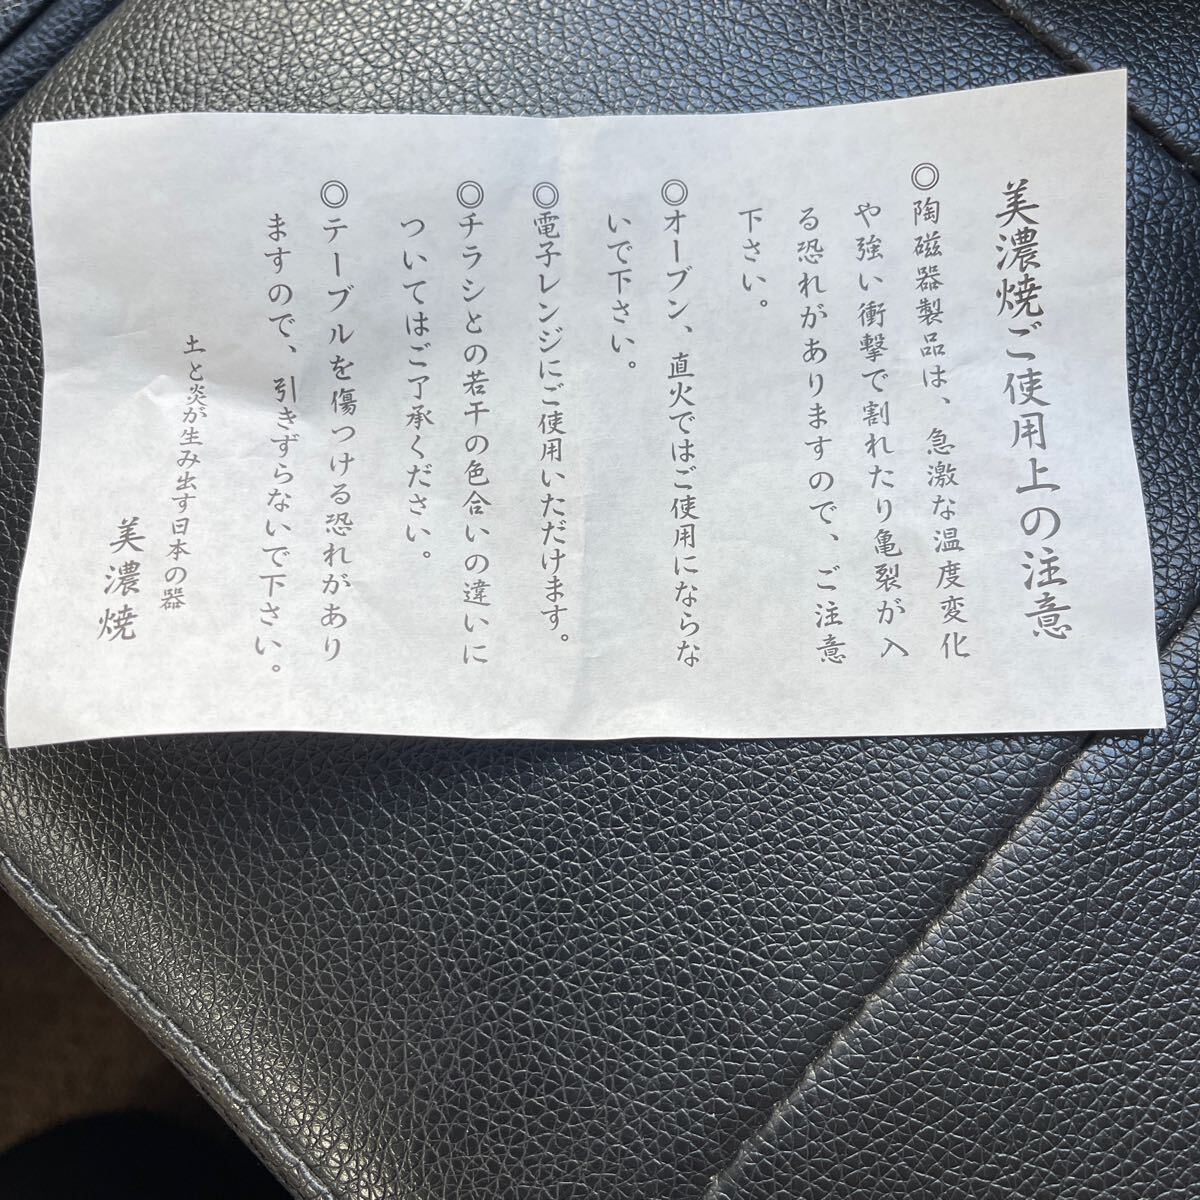 美濃焼ご使用上の注意
◎陶磁器製品は、急激な温度変化
や強い衝撃で割れたり亀裂が入
る恐れがありますので、ご注意
下さい。
◎オーブン、直火ではご使用にならな
いで下さい。
◎電子レンジにご使用いただけます。
◎チラシとの若干の色合いの違いに
ついてはご了承ください。
◎テーブルを傷つける恐れがあり
ますので、引きずらないで下さい。
土と炎が生み出す日本の器
美濃焼